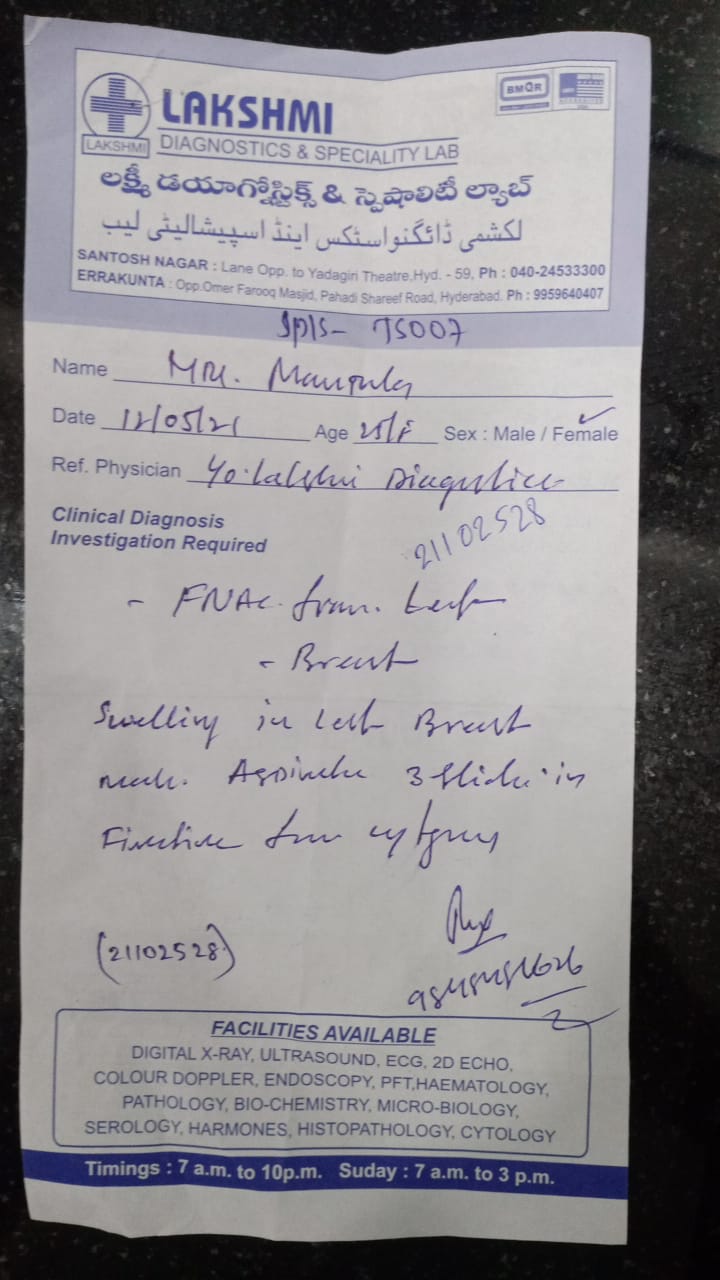 BMQR
LAKSHMI
LAKSHMI
DIAGNOSTICS & SPECIALITY LAB
లక్ష్మీ డయాగ్నోస్టిక్స్ & స్పెషాలిటీ ల్యాబ్
لکشمی ڈائگنواسٹکس اینڈ اسپیشالیٹی لیب
SANTOSH NAGAR : Lane Opp. to Yadagiri Theatre,Hyd. - 59, Ph : 040-24533300
ERRAKUNTA : Opp.Omer Farooq Masjid, Pahadi Shareef Road, Hyderabad. Ph : 9959640407
TS007
Name
Date 12/05/21 Age 25/F Sex : Male / Female
Ref. Physician
Clinical Diagnosis
Investigation Required
21102528
- FNAC
- Breast
Swelling in Left Breast
3 slides in
(21102528)
FACILITIES AVAILABLE
DIGITAL X-RAY, ULTRASOUND, ECG, 2D ECHO,
COLOUR DOPPLER, ENDOSCOPY, PFT,HAEMATOLOGY,
PATHOLOGY, BIO-CHEMISTRY, MICRO-BIOLOGY,
SEROLOGY, HARMONES, HISTOPATHOLOGY, CYTOLOGY
Timings : 7 a.m. to 10p.m. Suday : 7 a.m. to 3 p.m.